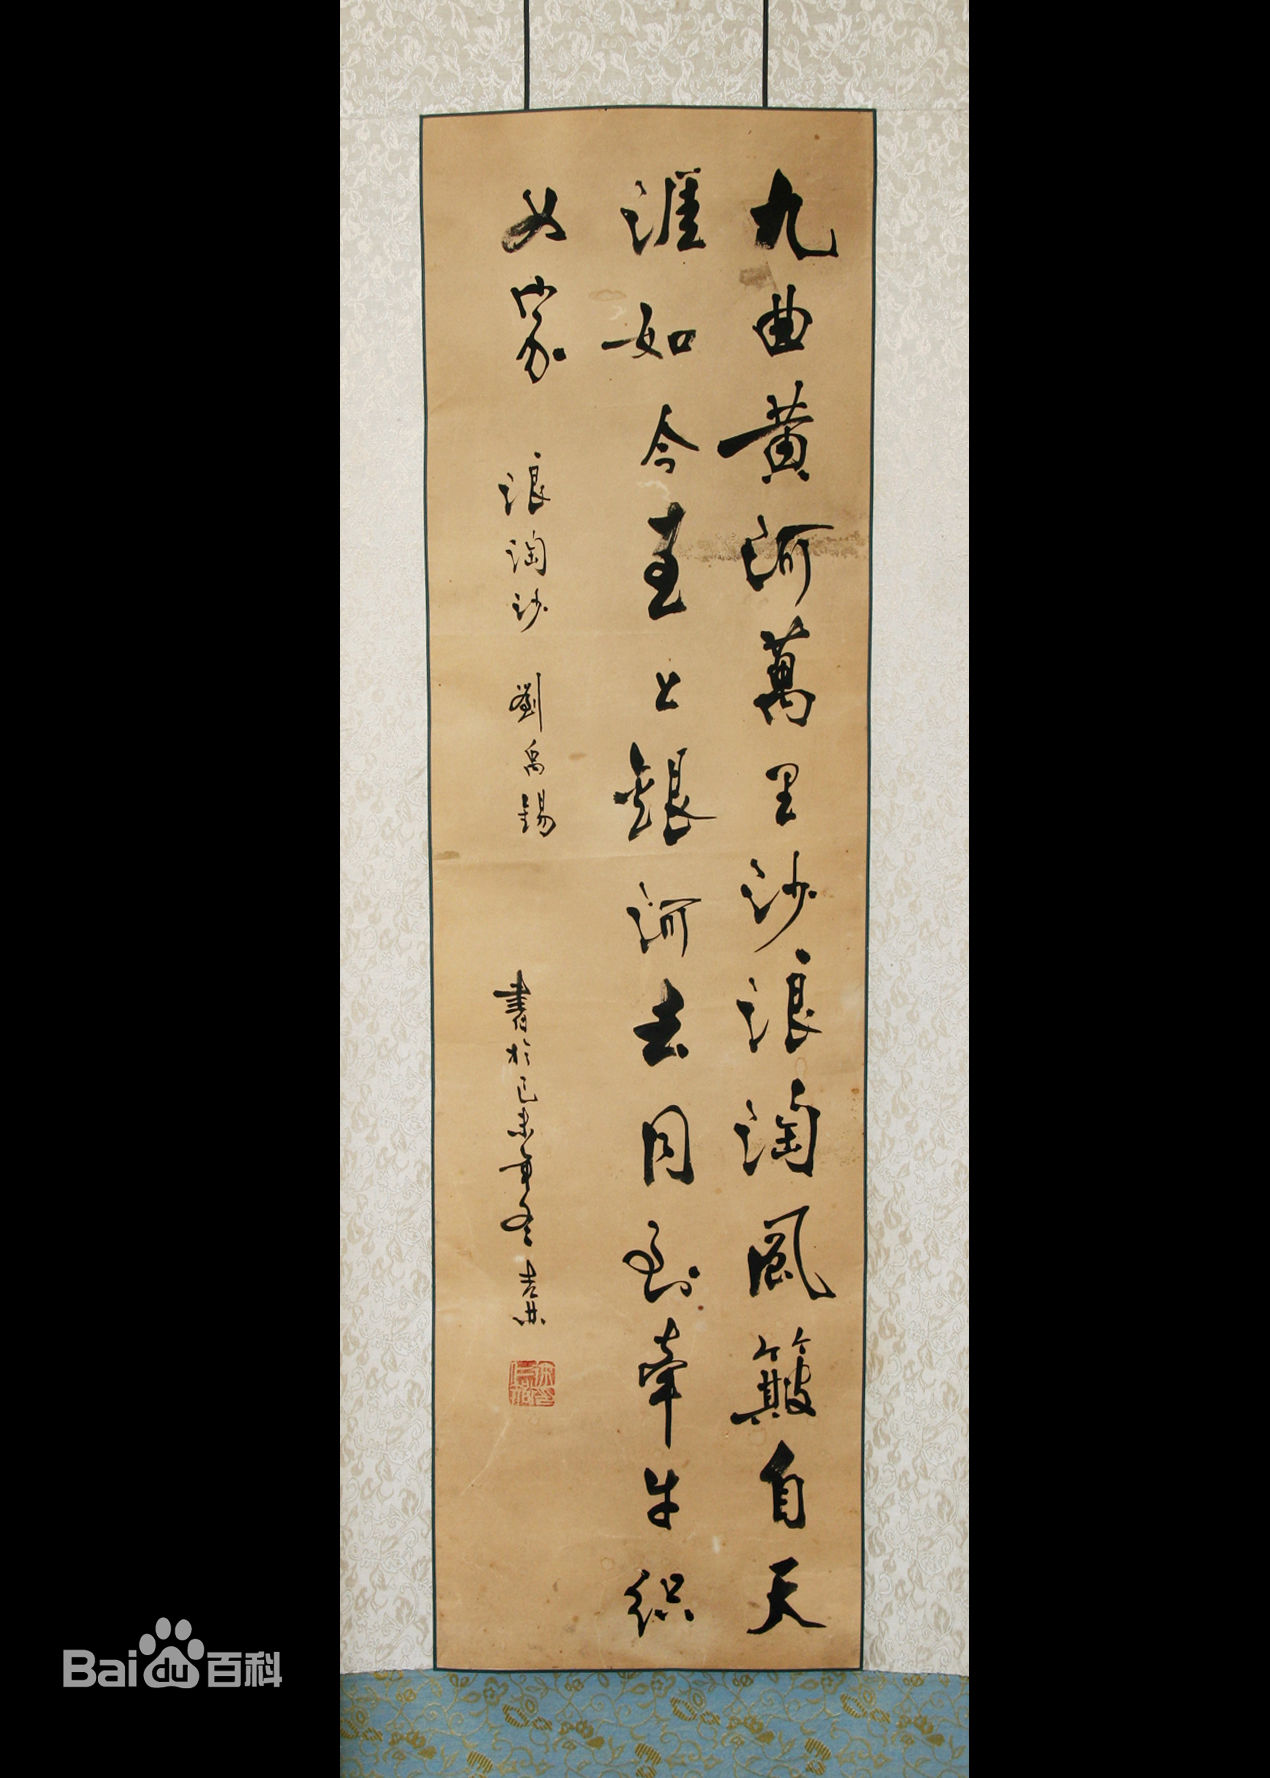 九曲黃河萬里沙浪淘風簸自天
涯如今直上銀河去同到牽牛織
女家 浪淘沙 劉禹錫 書於己未年冬
Baidu百科